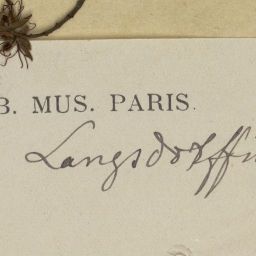 B. MUS. PARIS.
Langsdorffi